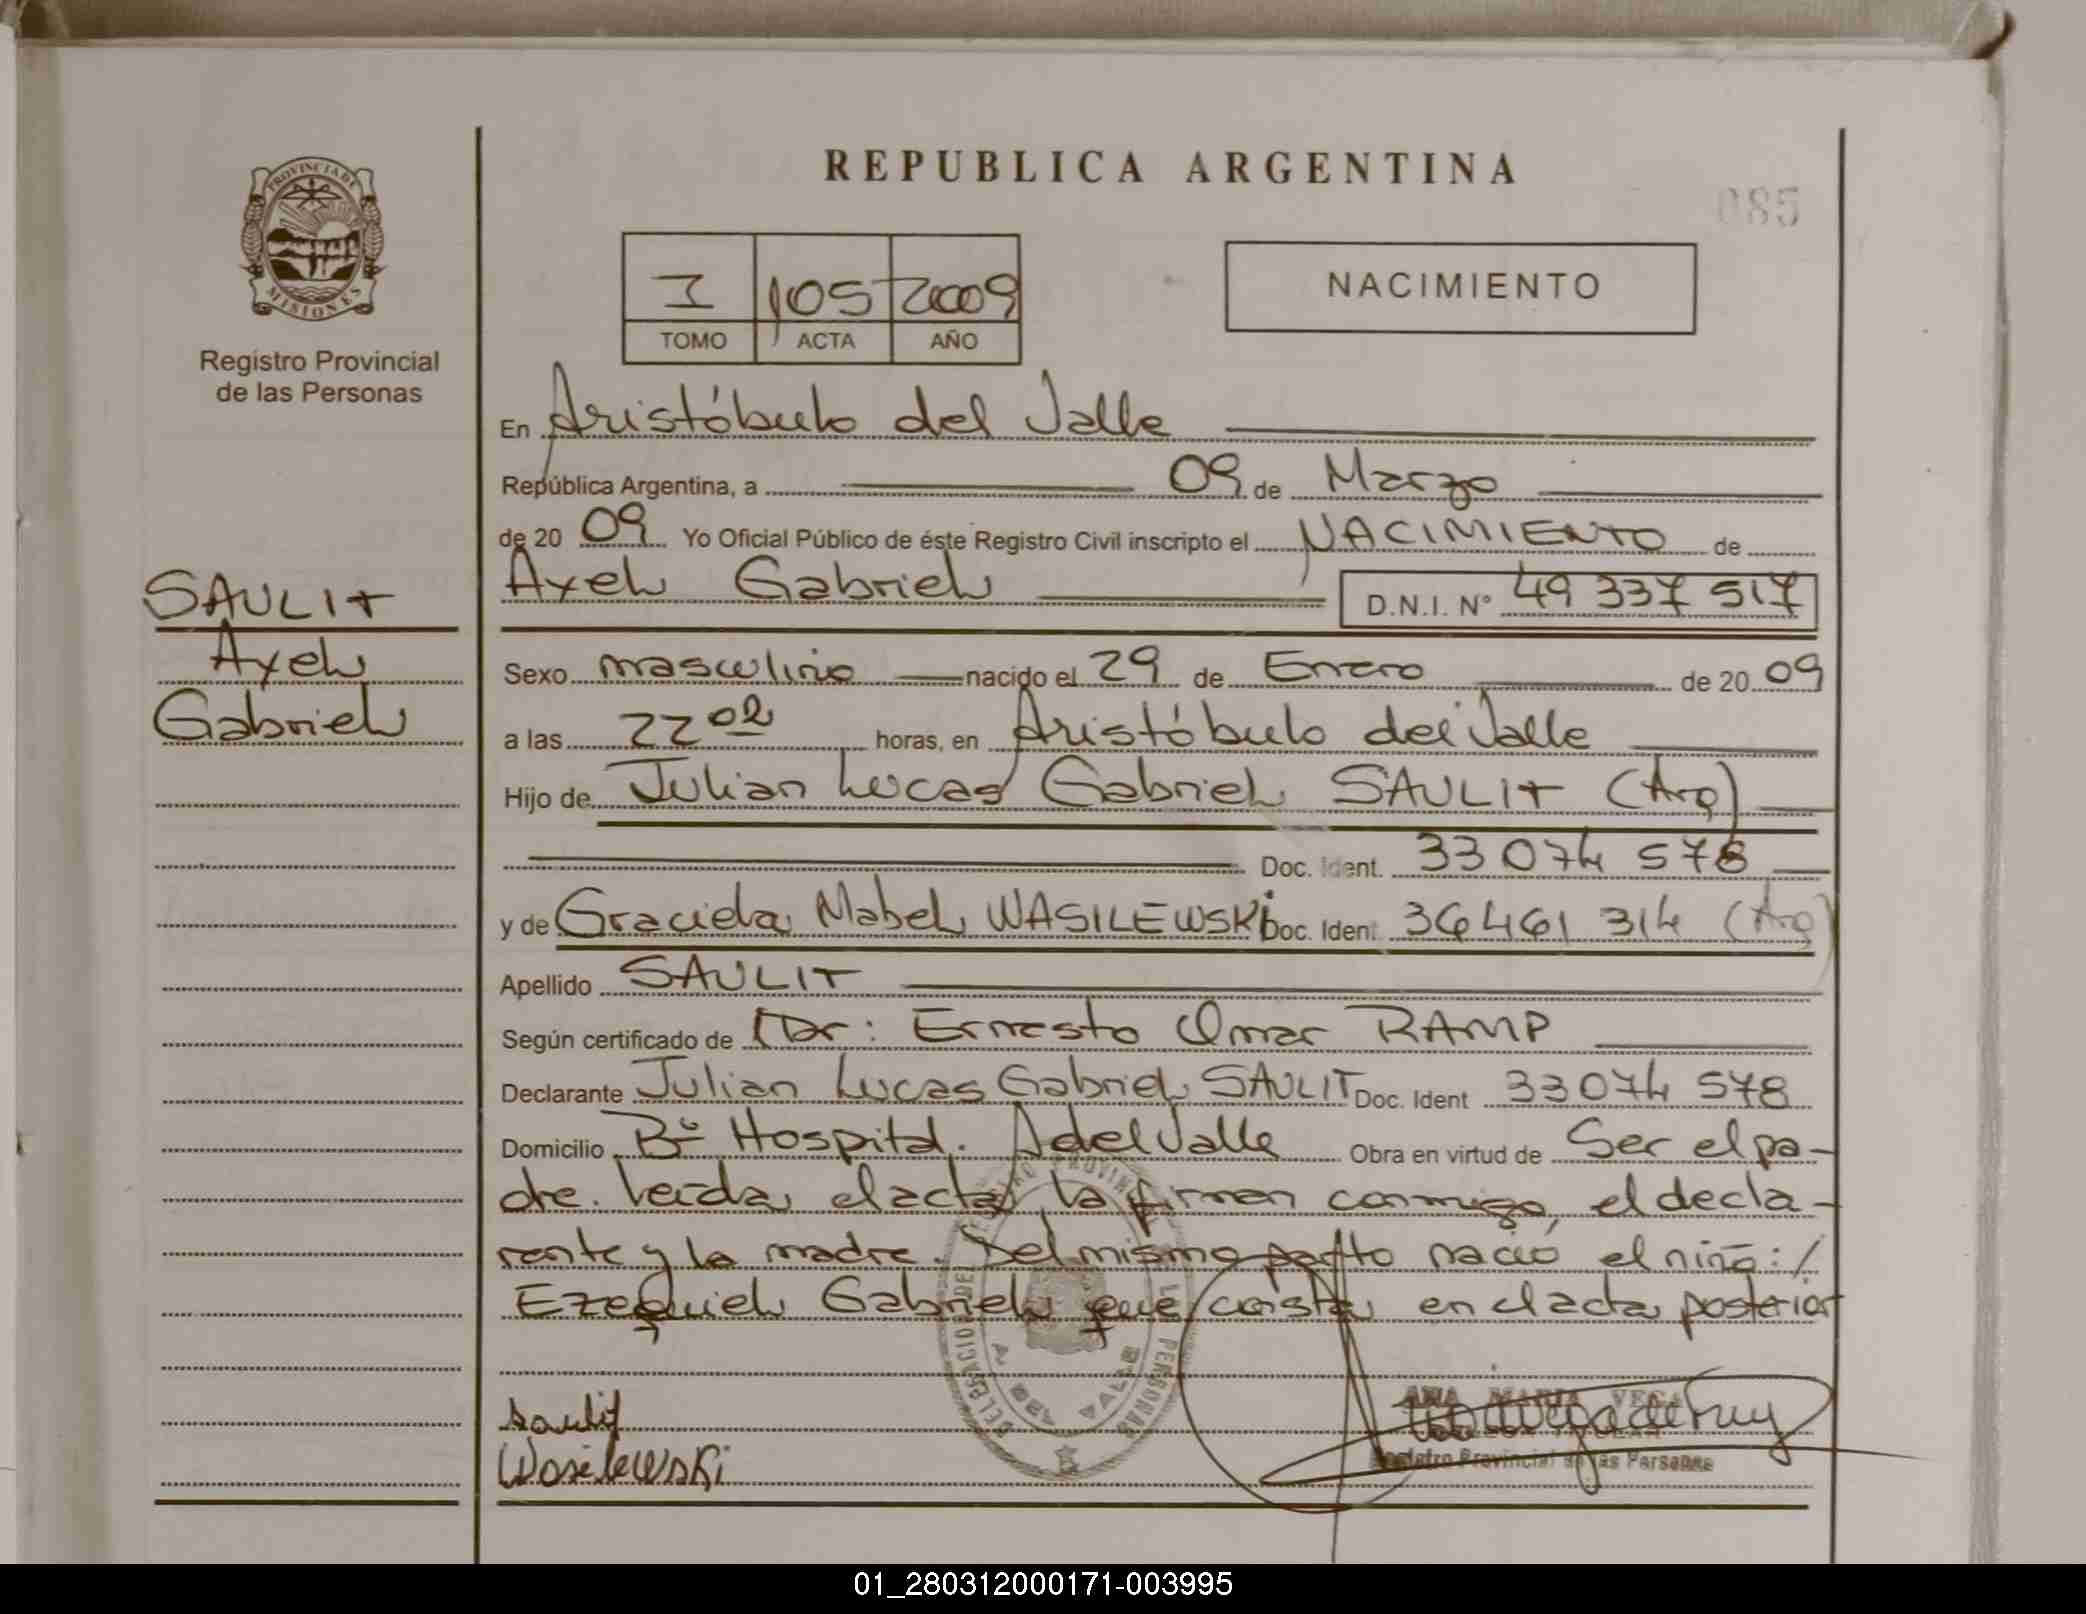 REPUBLICA ARGENTINA
085
PROVINCIA DE MISIONES
Registro Provincial
de las Personas
I 105 2009
TOMO ACTA AÑO
NACIMIENTO
En Aristóbulo del Valle
República Argentina, a 09 de Marzo
de 20 09 Yo Oficial Público de éste Registro Civil inscripto el NACIMIENTO de
Axel Gabriel D.N.I. N° 49 337 517
SAULIT
Axel
Gabriel
Sexo masculino nacido el 29 de Enero de 20 09
a las 22 02 horas, en Aristóbulo del Valle
Hijo de Julian Lucas Gabriel SAULIT (Arg)
Doc. Ident. 33 074 578
y de Graciela Mabel WASILEWSKI Doc. Ident 36 461 314 (Arg)
Apellido SAULIT
Según certificado de Dr: Ernesto Omar RAMP
Declarante Julian Lucas Gabriel SAULIT Doc. Ident 33 074 578
Domicilio Bº Hospital. A del Valle Obra en virtud de Ser el pa-
dre. Leída el acta la firman conmigo, el decla-
rante y la madre. Del mismo parto nació el niño:/
Ezequiel Gabriel que consta en el acta posterior
Saulit
Wasilewski
ANA MARIA VEGA
Registro Provincial de las Personas
01_280312000171-003995